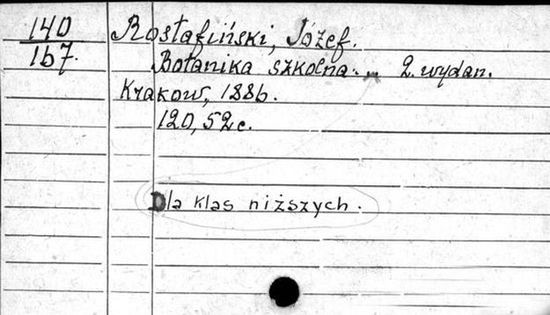 140
167.
Rostafiński, Józef.
Botanika szkolna. 2. wydan.
Kraków, 1886.
120, 52 c.
Dla klas niższych.